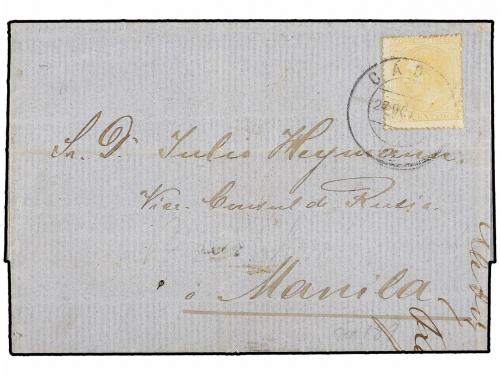 CAD
Sr. Dn. Julio Heymann.
Vice Consul de Rusia.
a Manila